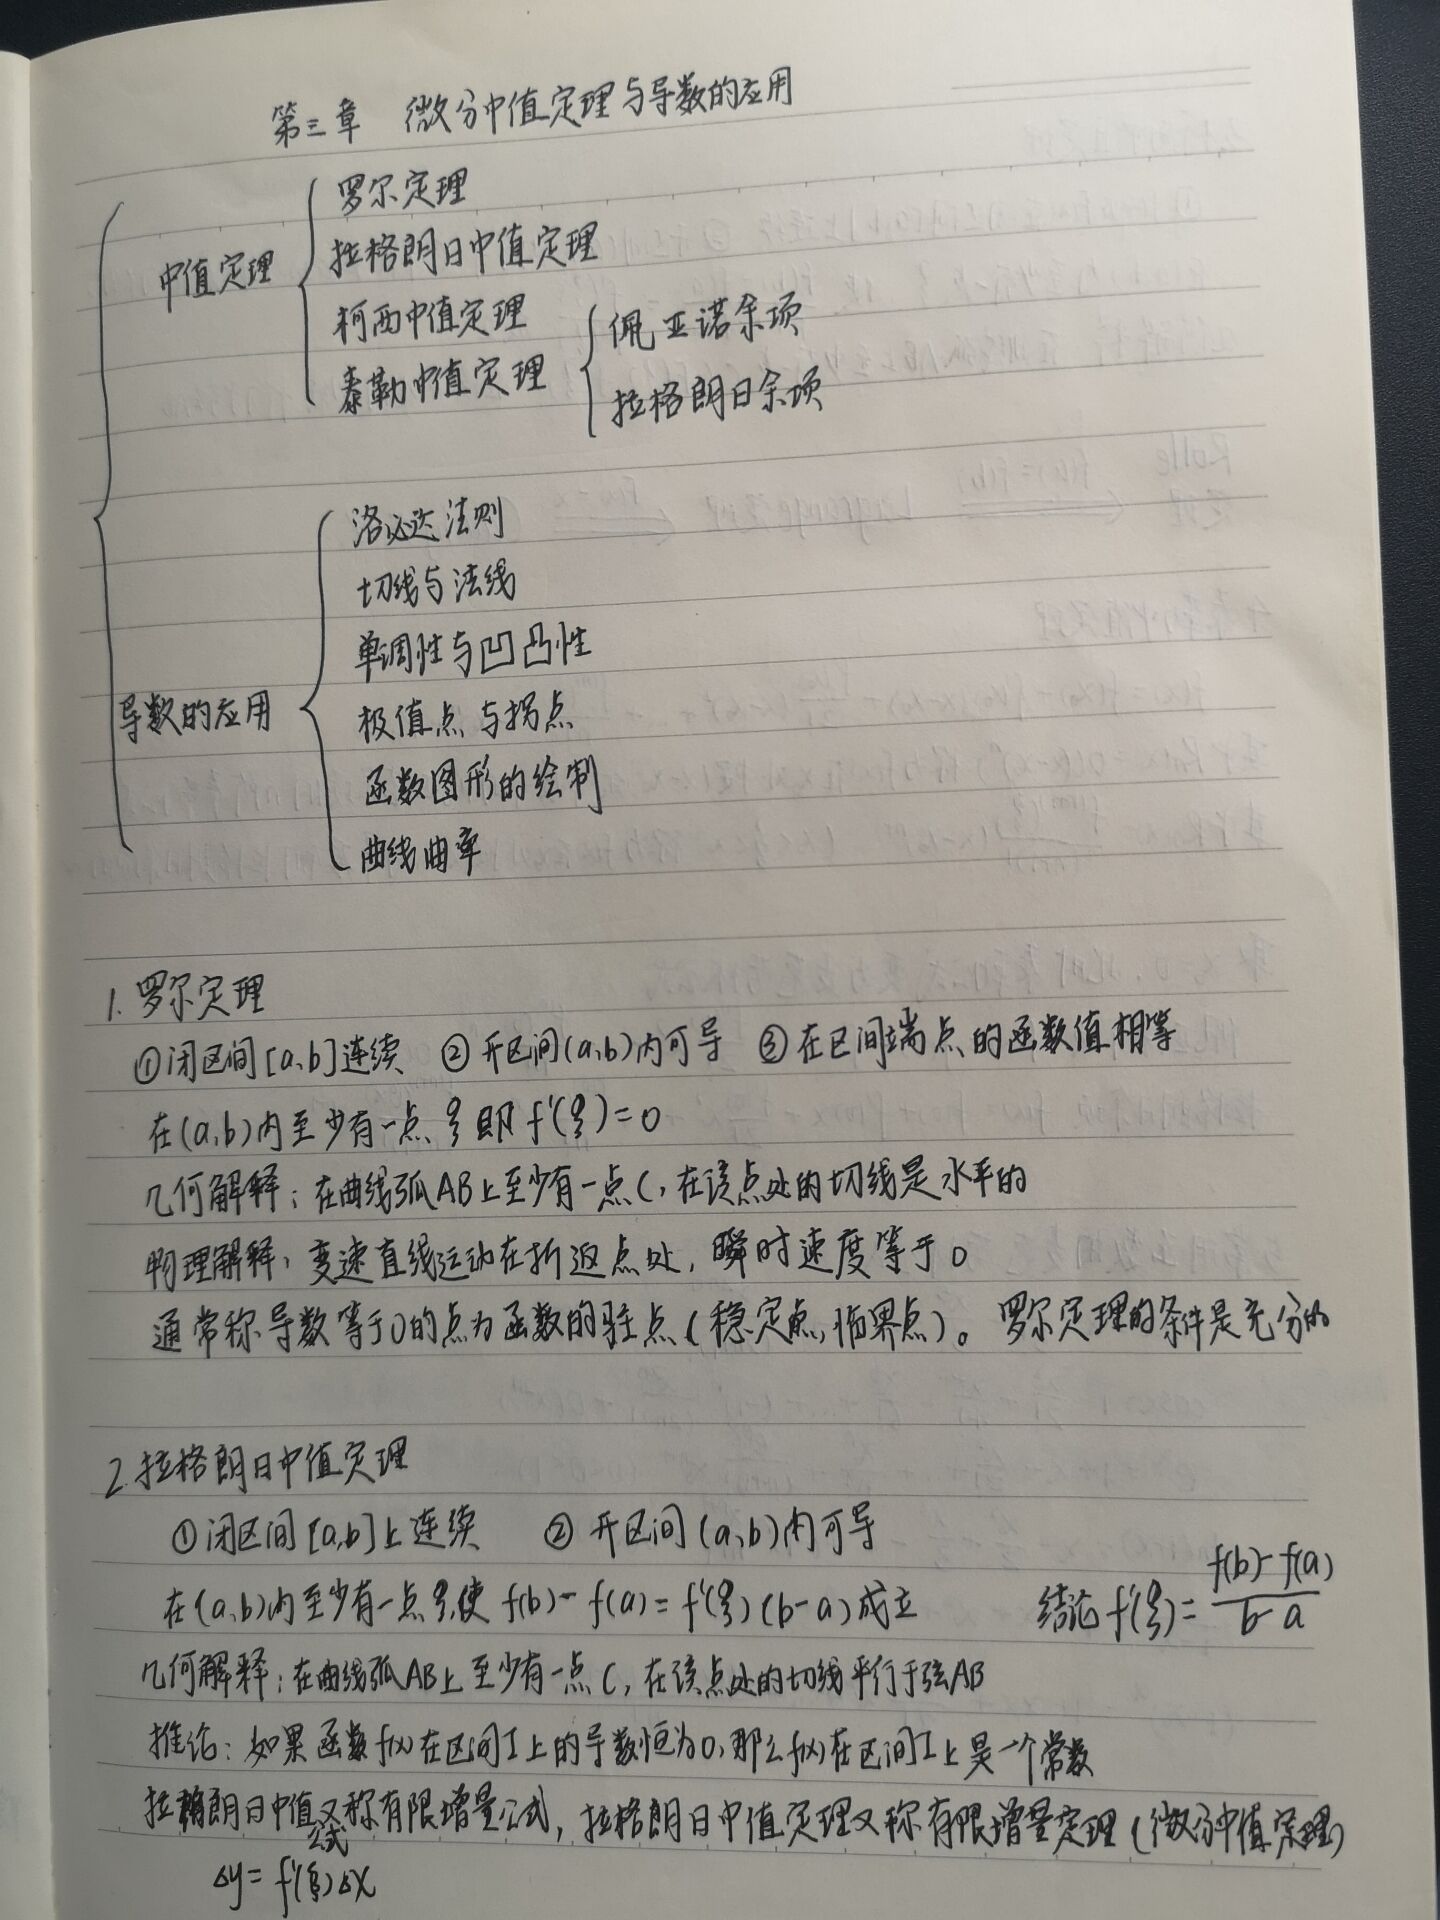 第三章 微分中值定理与导数的应用
中值定理
罗尔定理
拉格朗日中值定理
柯西中值定理
泰勒中值定理
佩亚诺余项
拉格朗日余项
导数的应用
洛必达法则
切线与法线
单调性与凹凸性
极值点与拐点
函数图形的绘制
曲线曲率
1. 罗尔定理
①闭区间[a,b]连续 ②开区间(a,b)内可导 ③在区间端点的函数值相等
在(a,b)内至少有一点ξ即f'(ξ)=0
几何解释:在曲线弧AB上至少有一点C,在该点处的切线是水平的
物理解释:变速直线运动在折返点处,瞬时速度等于0
通常称导数等于0的点为函数的驻点(稳定点,临界点)。罗尔定理的条件是充分的
2.拉格朗日中值定理
①闭区间[a,b]上连续 ②开区间(a,b)内可导
在(a,b)内至少有一点ξ,使f(b)-f(a)=f'(ξ)(b-a)成立 结论f'(ξ)=\frac{f(b)-f(a)}{b-a}
几何解释:在曲线弧AB上至少有一点C,在该点处的切线平行于弦AB
推论:如果函数f(x)在区间I上的导数恒为0,那么f(x)在区间I上是一个常数
拉格朗日中值公式又称有限增量公式,拉格朗日中值定理又称有限增量定理(微分中值定理)
Δy=f'(ξ)Δx